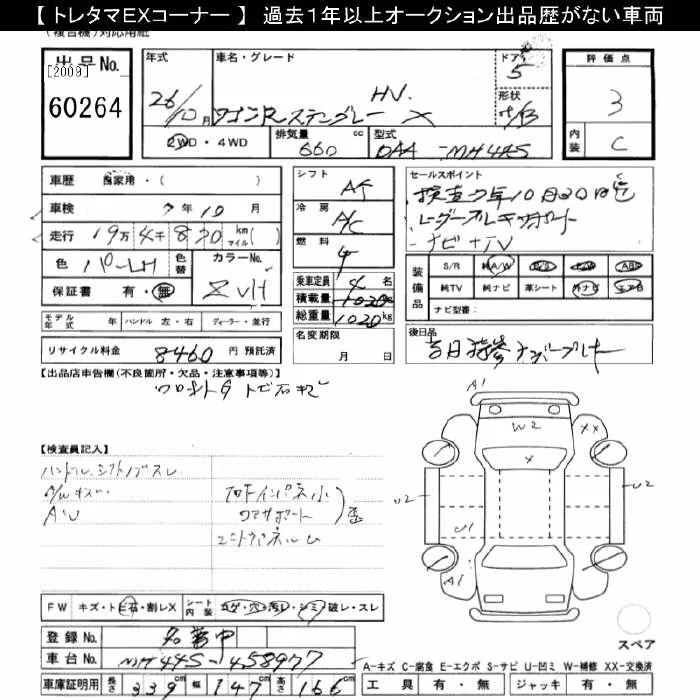 【 トレタマEXコーナー 】 過去1年以上オークション出品歴がない車両
(複合機)対応用紙
出品No.
[2009]
60264
年式
26/10月
車名・グレード
ワゴンRスティングレー X
HV.
ドア
5
形状
評価点
3
内装
C
2WD・4WD
排気量
660 cc
型式
DAA-MH44S
車歴 自家用・( )
車検 7年10月
走行 19万4千830 km マイル( )
色 パールH
色替
カラーNo.
ZVH
保証書 有・無
シフト
AT
冷房
A/C
燃料
乗車定員 4名
積載量 kg
総重量 1020kg
名変期限
月 日
セールスポイント
検査7年10月30日迄
レーダーブレーキサポート
ナビ+TV
装備品
S/R 純A/W P/S P/W ABS
純TV 純ナビ 革シート 外ナビ エアB
ナビ型番:
モデル年式 年 ハンドル 左・右 ディーラー・並行
リサイクル料金 8460 円 預託済
後日品
【出品店申告欄(不良箇所・欠品・注意事項等)】
フロントガラス トビ石キズ
【検査員記入】
ハンドル、シフトノブスレ
A/Wキズ
AU
コアサポート
歪
A1
W2
XX
X
U2
U2
U1
A1
FW キズ・トビ石・割レX
シート内装 コゲ・穴・汚レ・シミ・破レ・スレ
スペア
登録No. 名変中
車台No. MH44S-458977
A-キズ C-腐食 E-エクボ S-サビ U-凹ミ W-補修 XX-交換済
車庫証明用 長さ 339 cm 幅 147 cm 高さ 166 cm
工具 有・無 ジャッキ 有・無